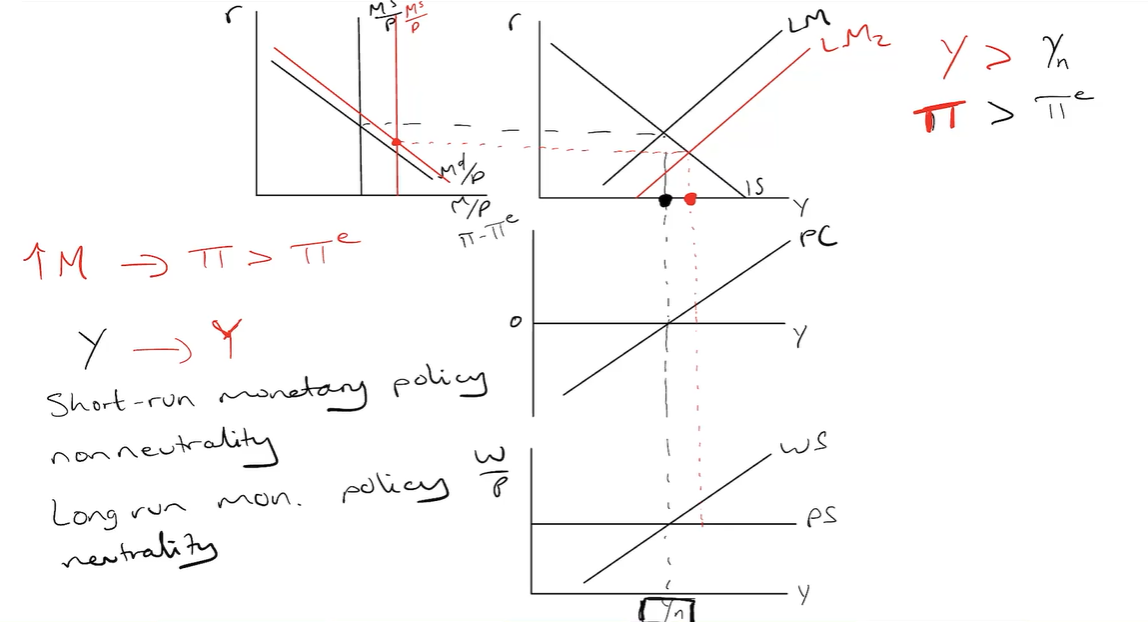 r
Ms/P Ms/P
Md/P
M/P
r
LM
LM2
IS
Y
Y > Yn
π > πe
↑M → π > πe
Y → Y
Short-run monetary policy
nonneutrality
Long run mon. policy
neutrality
π-πe
PC
0
Y
W/P
WS
PS
Y
Yn